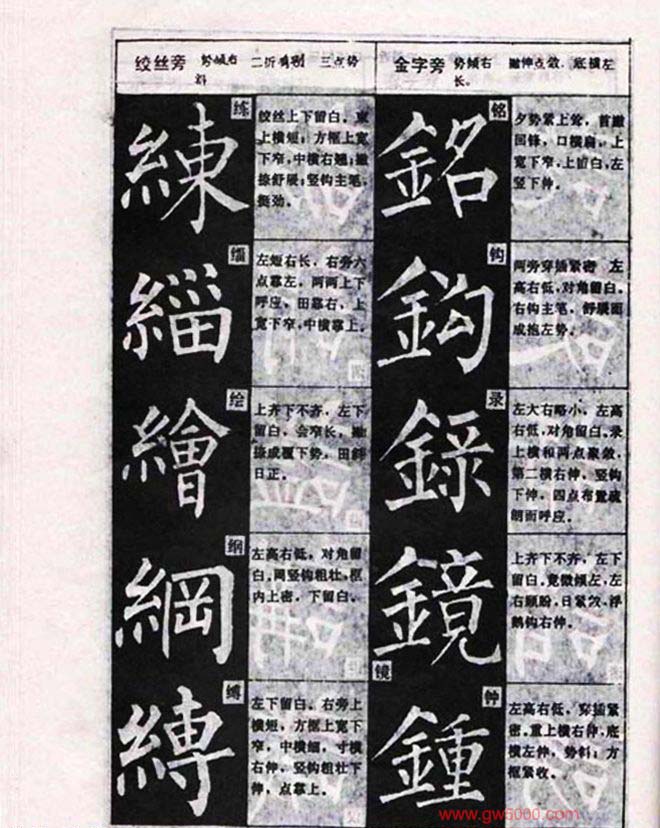 绞丝旁 势倾右 二折有别 三点势
斜
練
练
绞丝上下留白，束
上横短；方框上宽
下窄，中横右翘；撇
捺舒展；竖钩主笔，
挺劲。
緇
缁
左短右长，右旁六
点靠左，两两上下
呼应，田靠右，上
宽下窄，中横靠上。
繪
绘
上齐下不齐，左下
留白，会窄长，撇
捺成覆下势，田斜
日正。
綱
纲
左高右低，对角留
白。冈竖钩粗壮，框
内上密，下留白。
縛
缚
左下留白。右旁上
横短，方框上宽下
窄，中横细，寸横
右伸，竖钩粗壮下
伸，点靠上。
金字旁 势倾右 撇伸点敛，底横左
长。
銘
铭
夕势紧上耸，首撇
回锋，口横扁，上
宽下窄，上留白，左
竖下伸。
鈎
钩
两旁穿插紧密 左
高右低，对角留白。
右钩主笔，舒展而
成抱左势。
録
录
左大右略小，左高
右低，对角留白。录
上横和两点聚敛，
第二横右伸，竖钩
下伸，四点布置疏
朗而呼应。
鏡
镜
上齐下不齐，左下
留白，竟微倾左，左
右顾盼，日紧敛，浮
鹅钩右伸。
鍾
钟
左高右低，穿插紧
密。重上横右伸，底
横左伸，势斜；方
框紧收。
www.gw5000.com